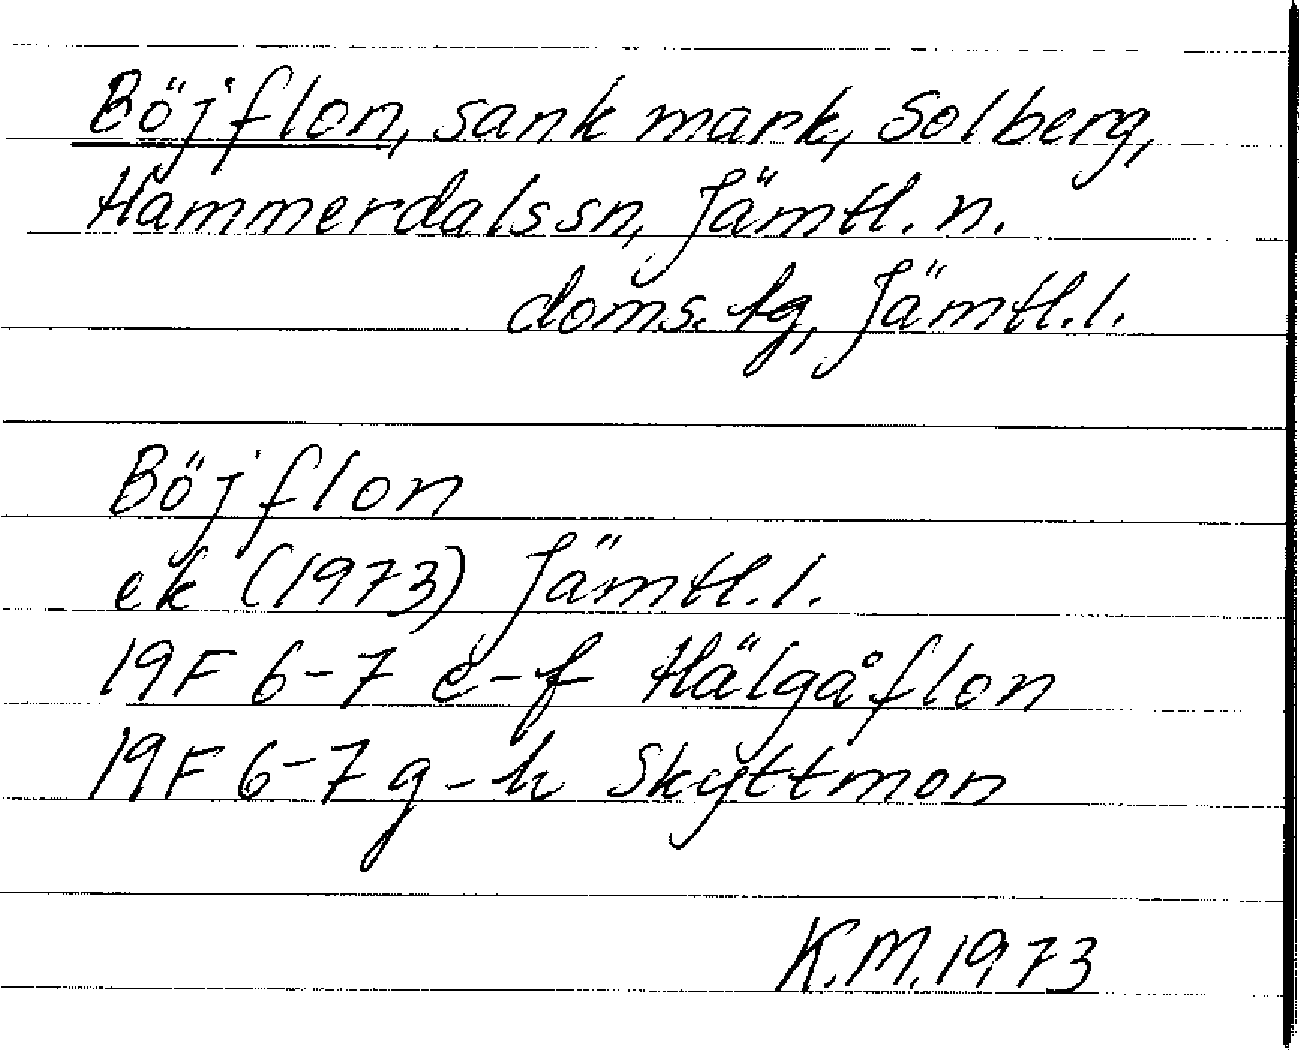 Böjflon, sank mark, Solberg,
Hammerdalssn, Jämtl. n.
doms. tg, Jämtl. l.
Böjflon
ek (1973) Jämtl. l.
19F 6-7 e-f Hälgåflon
19F 6-7 g-h Skyttmon
K.M. 1973